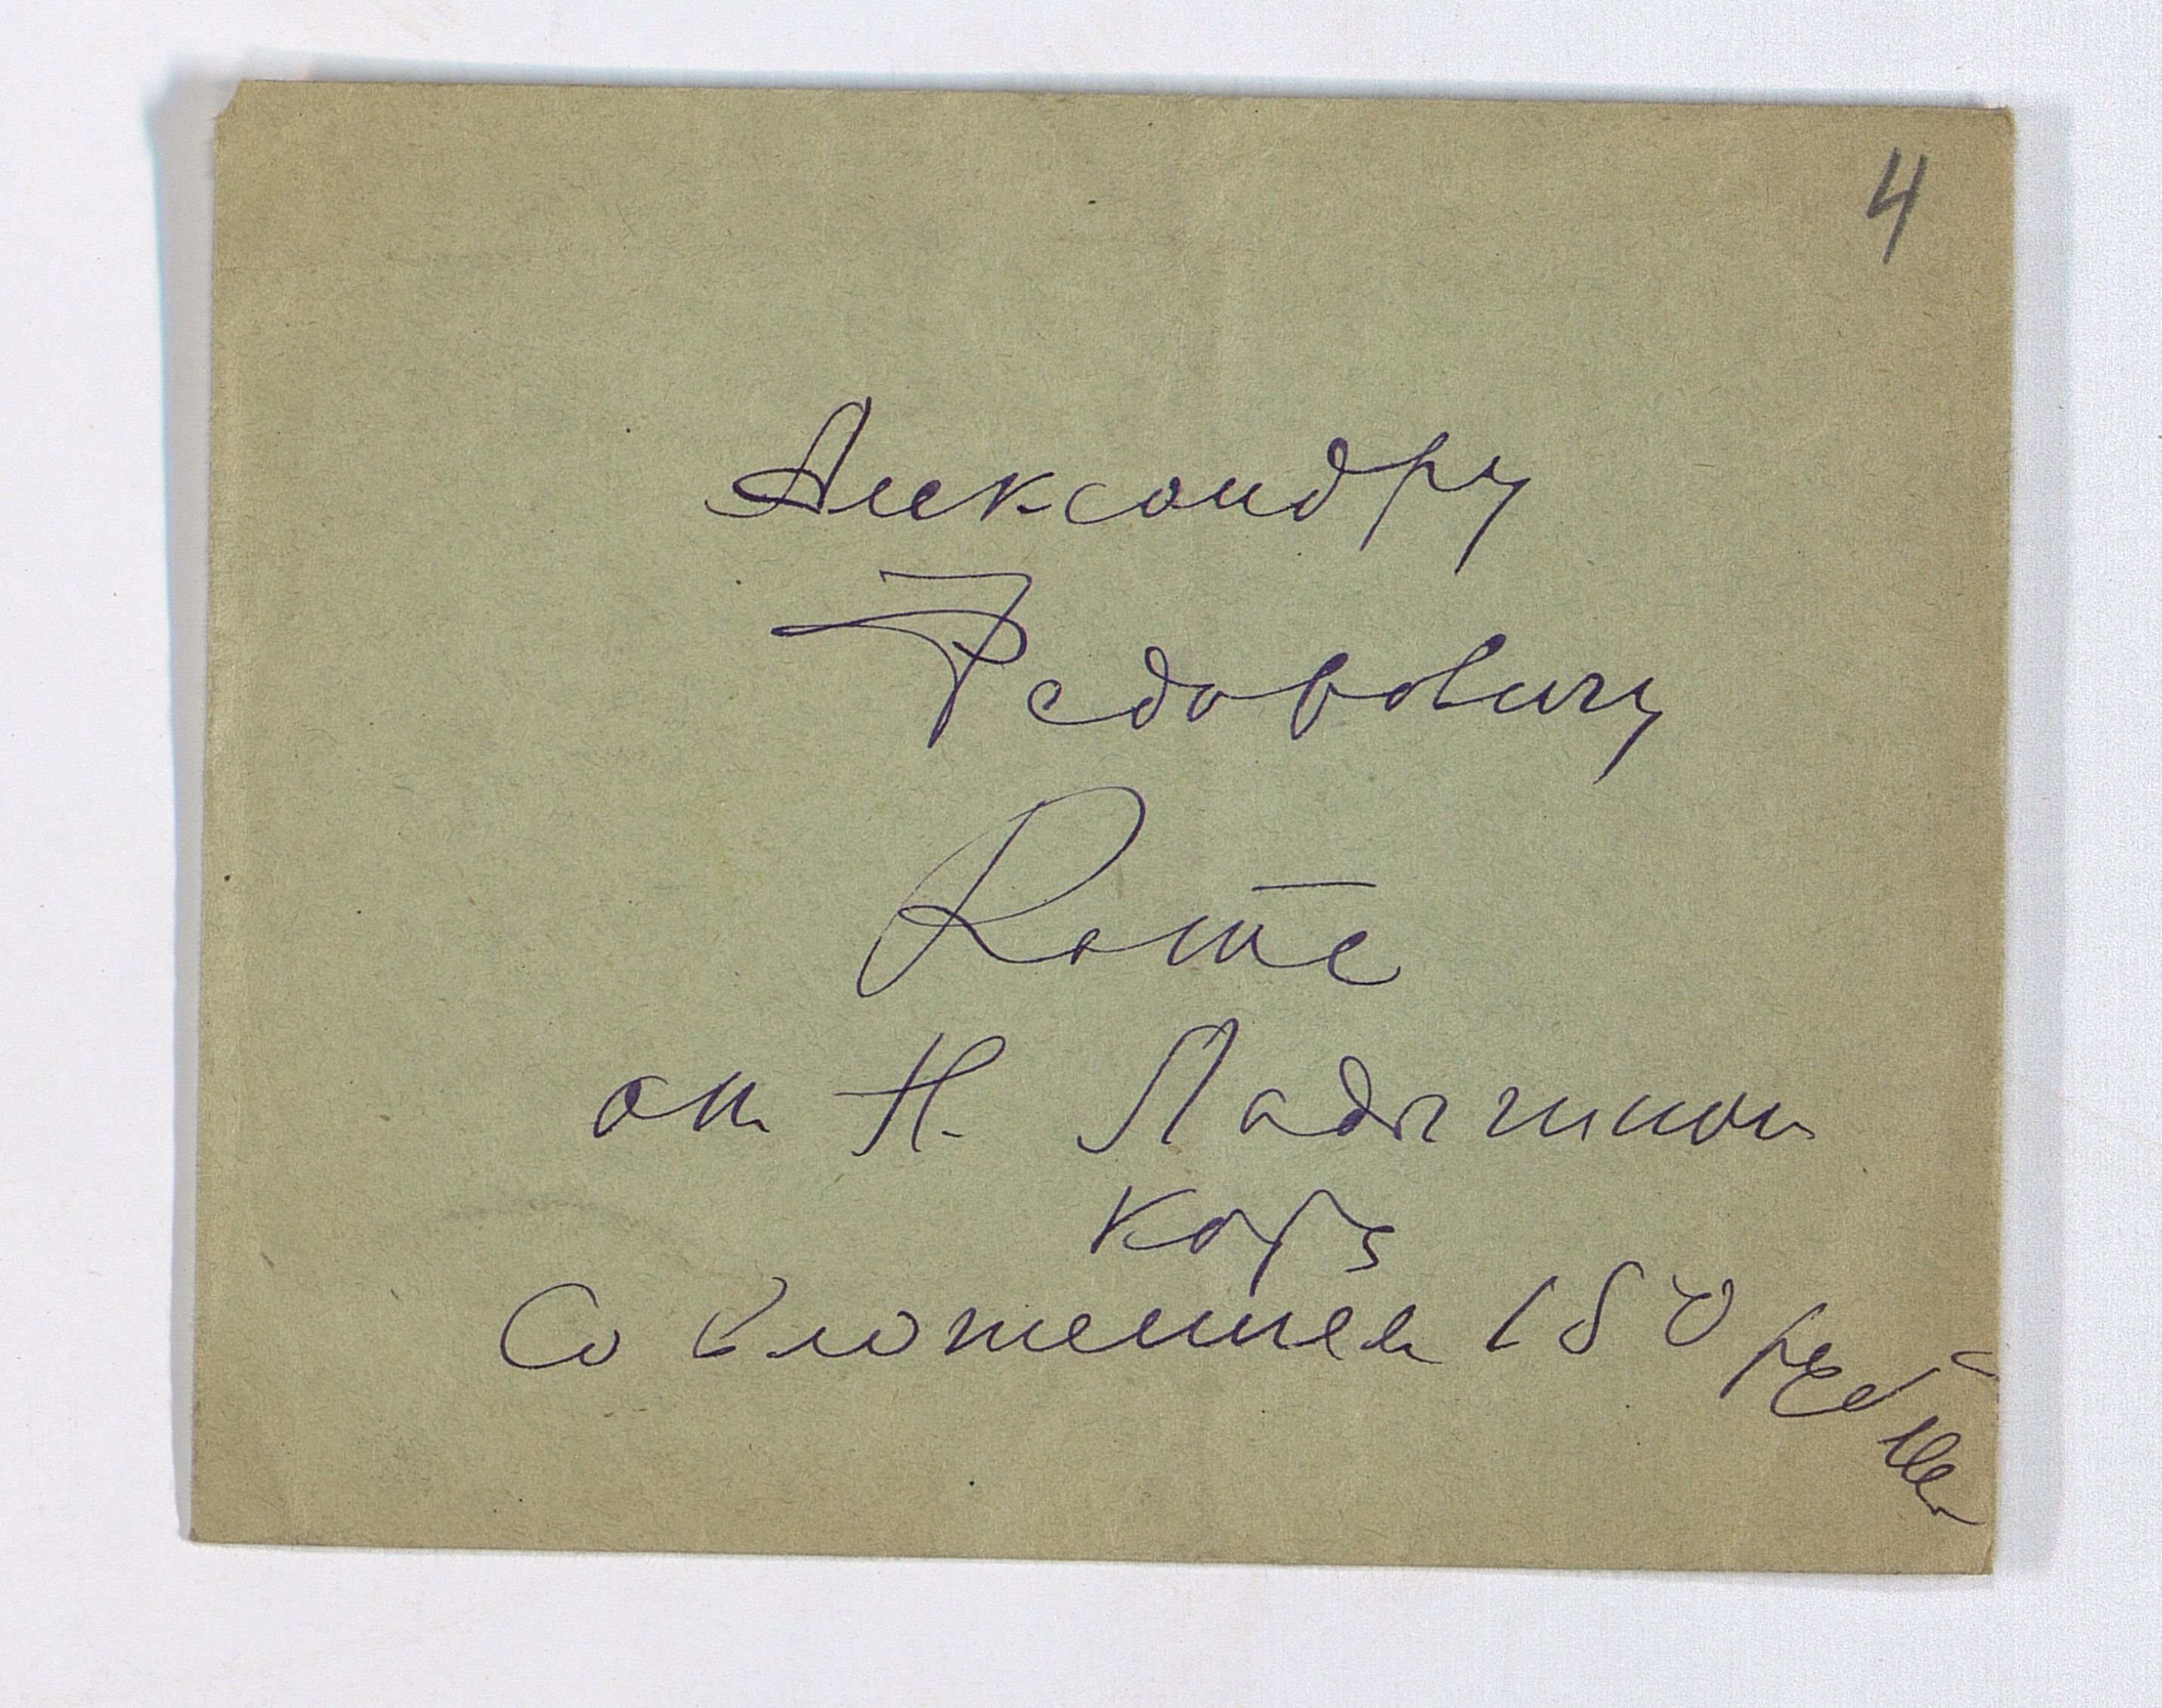 4
Александру
Федоровичу
Котс
от Н. Ладыгиной
Котс
Со вложением 150 рублей